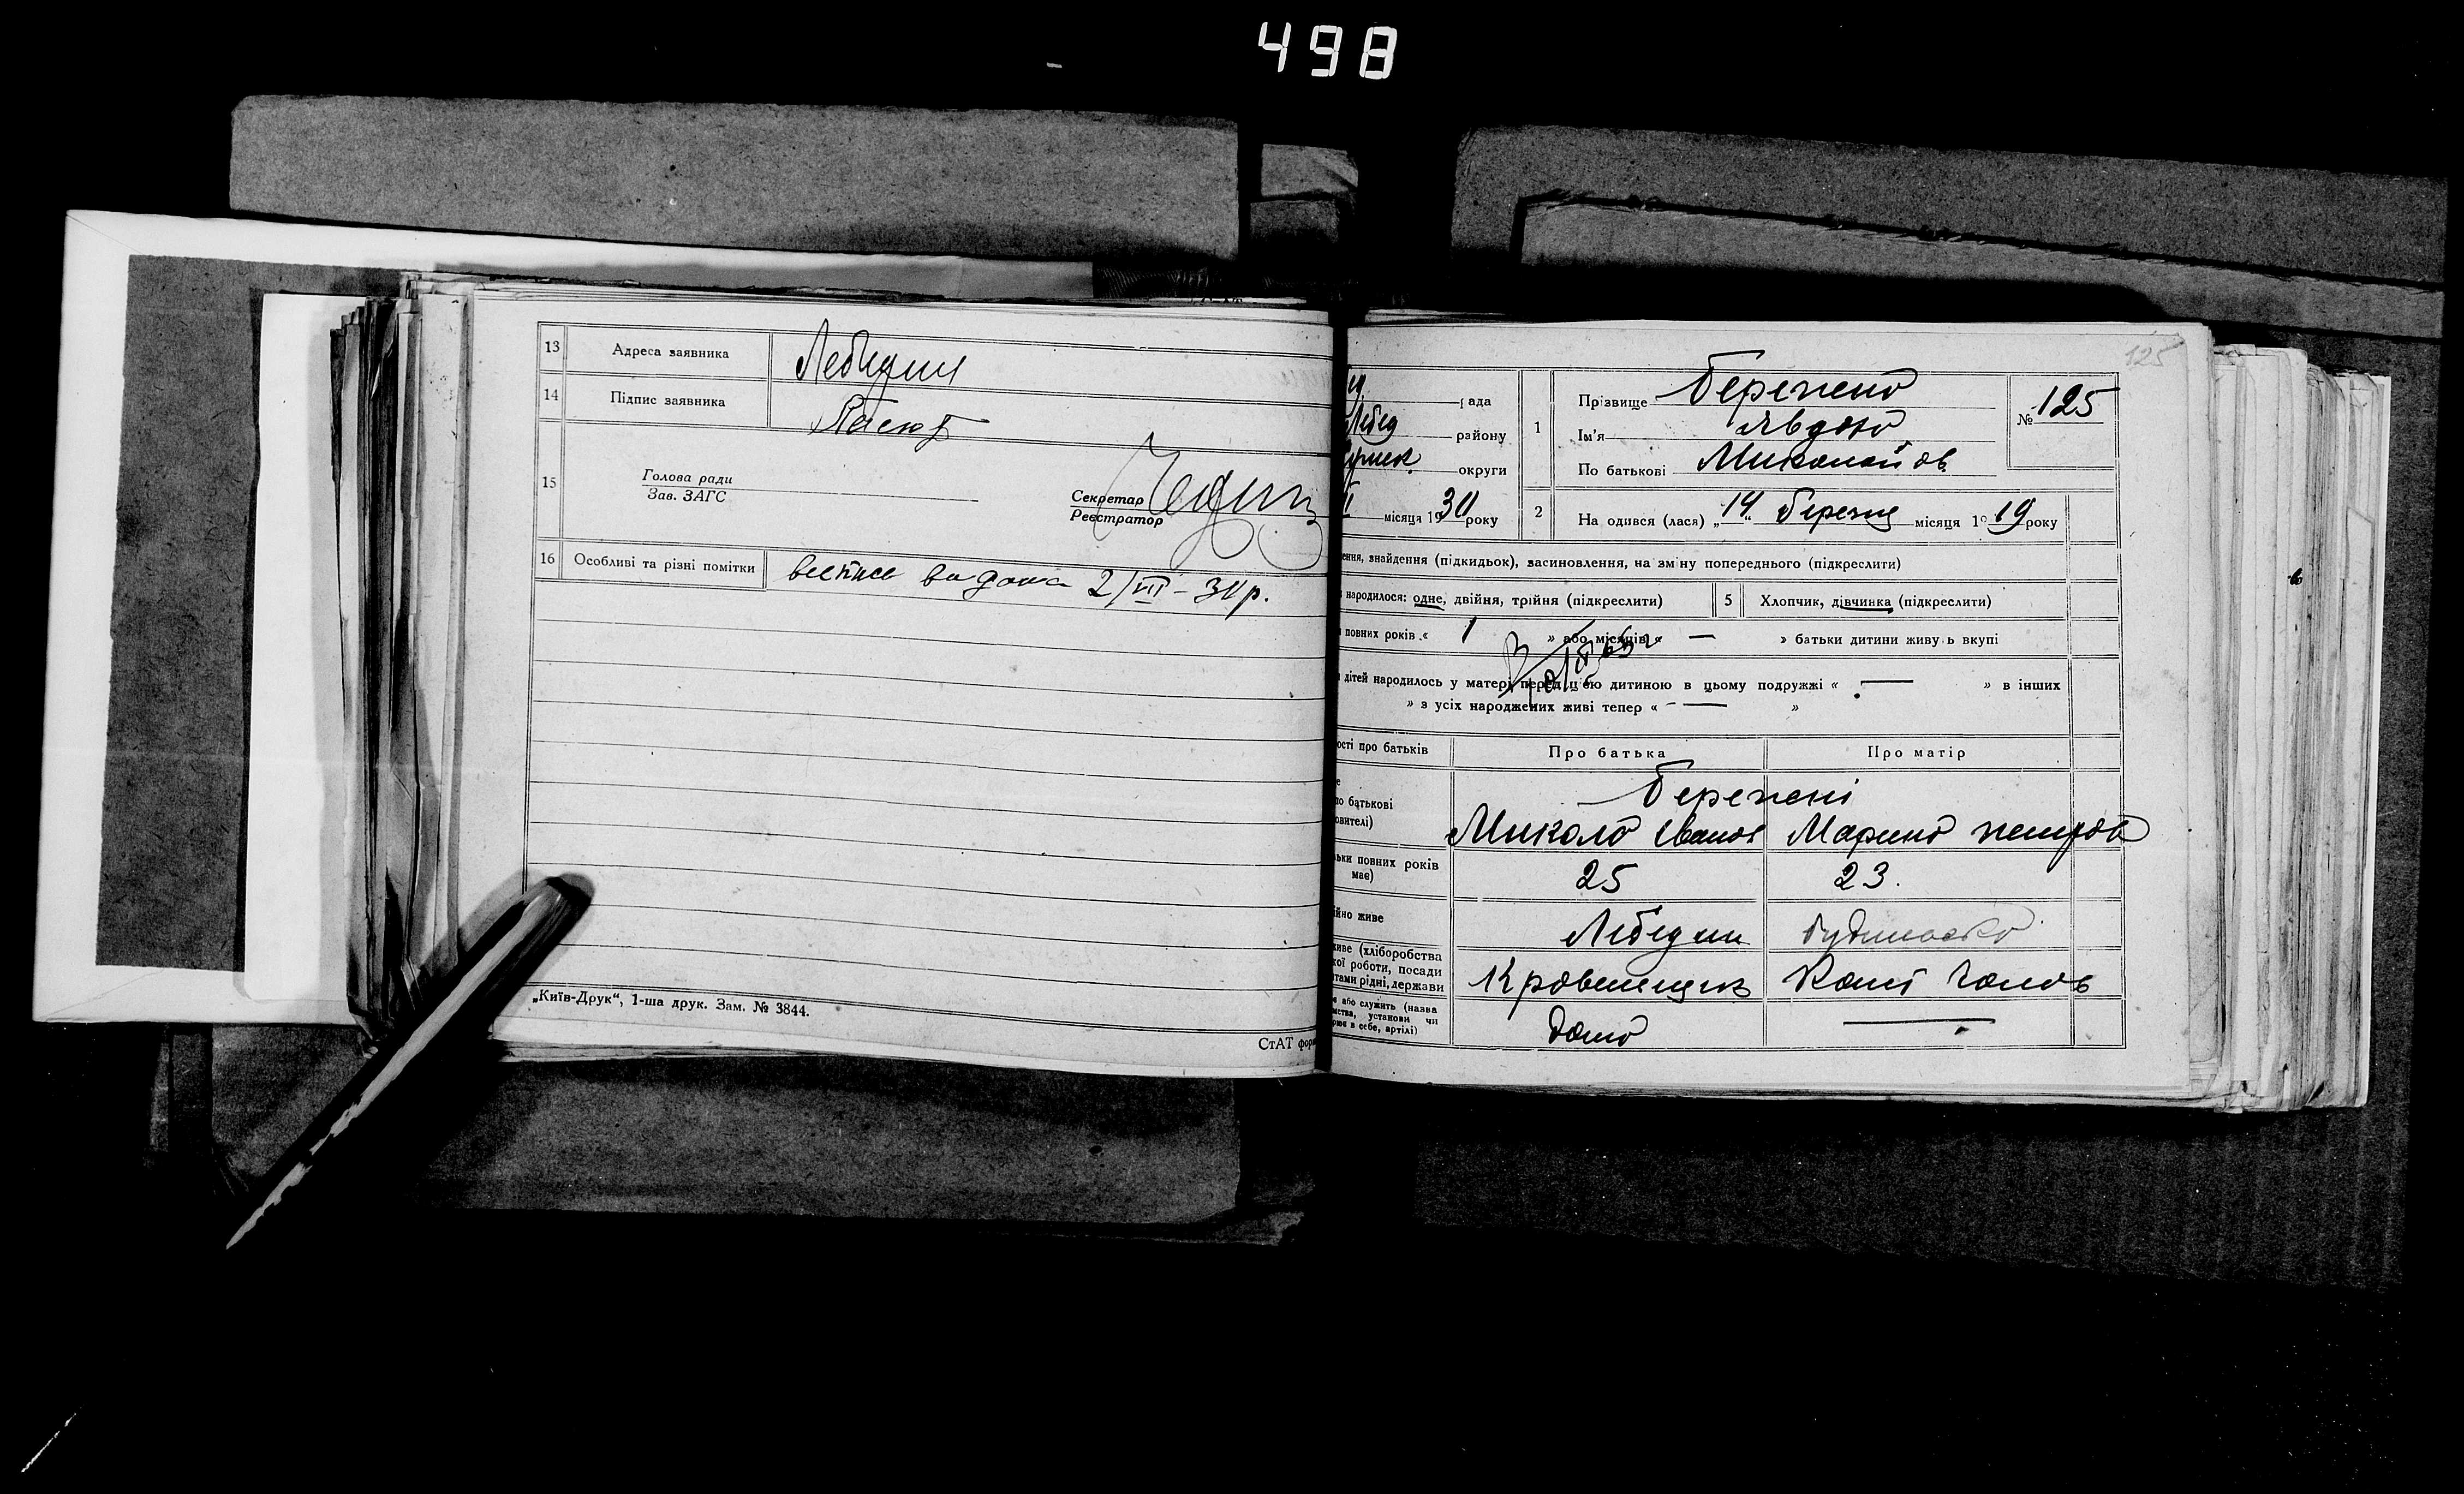 498
13 Адреса заявника Лебедин
14 Підпис заявника
15 Голова ради
Зав. ЗАГС
Секретар
Реєстратор
16 Особливі та різні помітки виписъ видана 2/VII – 30 р.
„Київ-Друк“, 1-ша друк. Зам. № 3844.
СтАТ фор
125
рада
Лебед району
округи
місяця 1930 року
1 Прізвище Бережна
Ім'я Явдоха
По батькові Миколайов
№ 125
2 На одився (лася) „14“ березня місяця 1919 року
ення, знайдення (підкидьок), засиновлення, на зміну попереднього (підкреслити)
народилося: одне, двійня, трійня (підкреслити) 5 Хлопчик, дівчинка (підкреслити)
повних років « 1 » або місяців « — » батьки дитини живуть вкупі
дітей народилось у матері перед цією дитиною в цьому подружжі « — » в інших
» з усіх народжених живі тепер « — »
ості про батьків Про батька Про матір
Бережні
по батькові
овителі) Микола Іванов Марина петров
ьки повних років
має) 25 23.
ійно живе Лебедин
живе (хліборобства
кої роботи, посади
тами рідні, держави Кровельщик
м або служить (назва
мства, установи чи
рює в себе, артілі) дома —